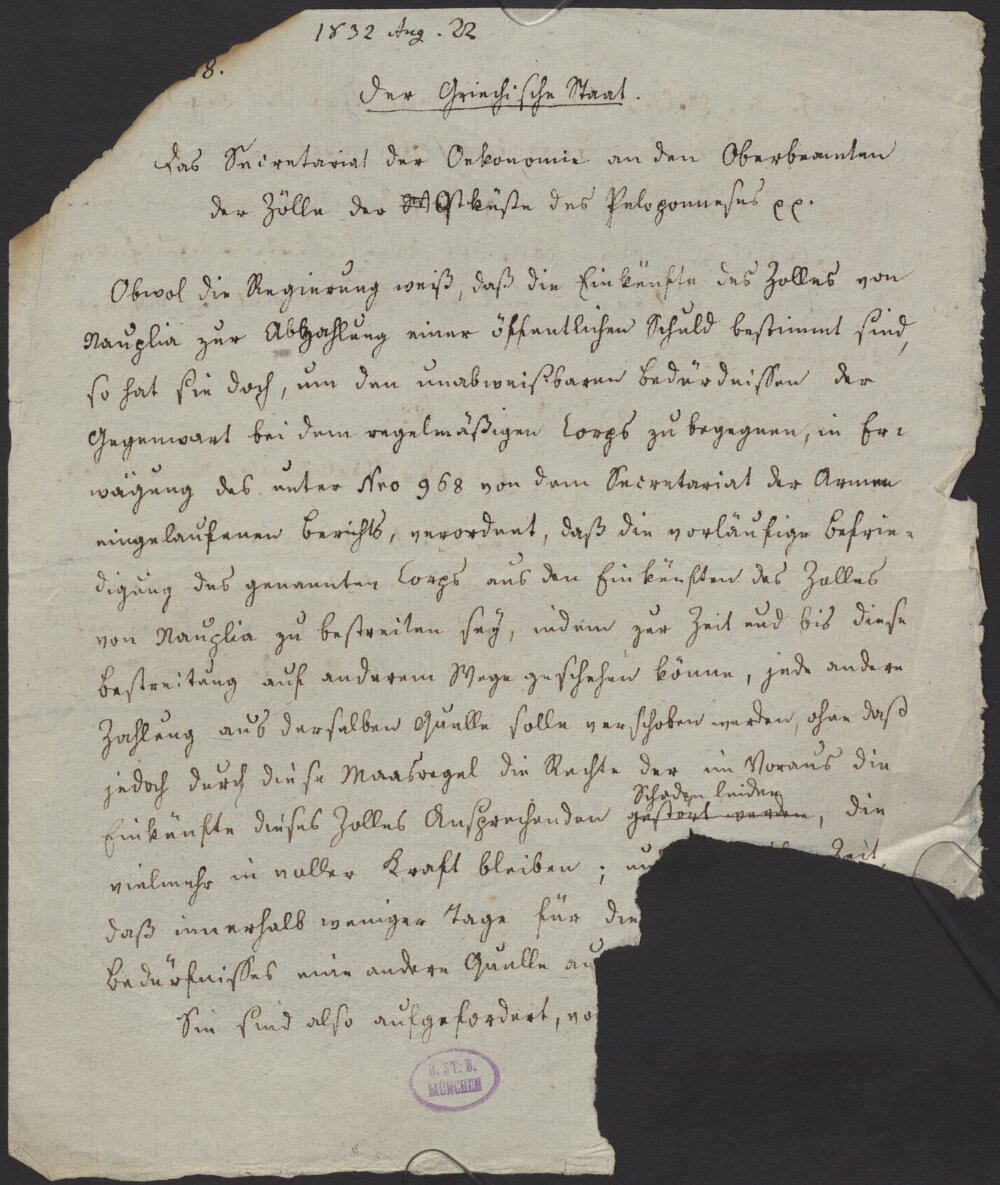 1832 Aug. 22
8.
Der Griechische Staat.
Das Secretariat der Oekonomie an den Oberbeamten
der Zölle der Ostküste des Peloponneses pp.
Obwol die Regierung weiß, daß die Einkünfte des Zolles von
Nauplia zur Abzahlung einer öffentlichen Schuld bestimmt sind,
so hat sie doch, um den unabweisbaren Bedürdnissen der
Gegenwart bei dem regelmäßigen Corps zu begegnen, in Er=
wägung des unter Nro 968 von dem Secretariat der Armee
eingelaufenen Berichts, verordnet, daß die vorläufige Befrie=
digung des genannten Corps aus den Einkünften des Zolles
von Nauplia zu bestreiten sey, indem zur Zeit und bis diese
Bestreitung auf anderem Wege geschehen könne, jede andere
Zahlung aus derselben Quelle solle verschoben werden, ohne daß
jedoch durch diese Maasregel die Rechte der im Voraus die
Schaden leiden
Einkünfte dieses Zolles Ansprechenden gestört werden, die
vielmehr in voller Kraft bleiben; Zeit,
daß innerhalb weniger Tage für die
Bedürfnisses eine andere Quelle au
Sie sind also aufgefordert, vo
B. ST. B.
MÜNCHEN